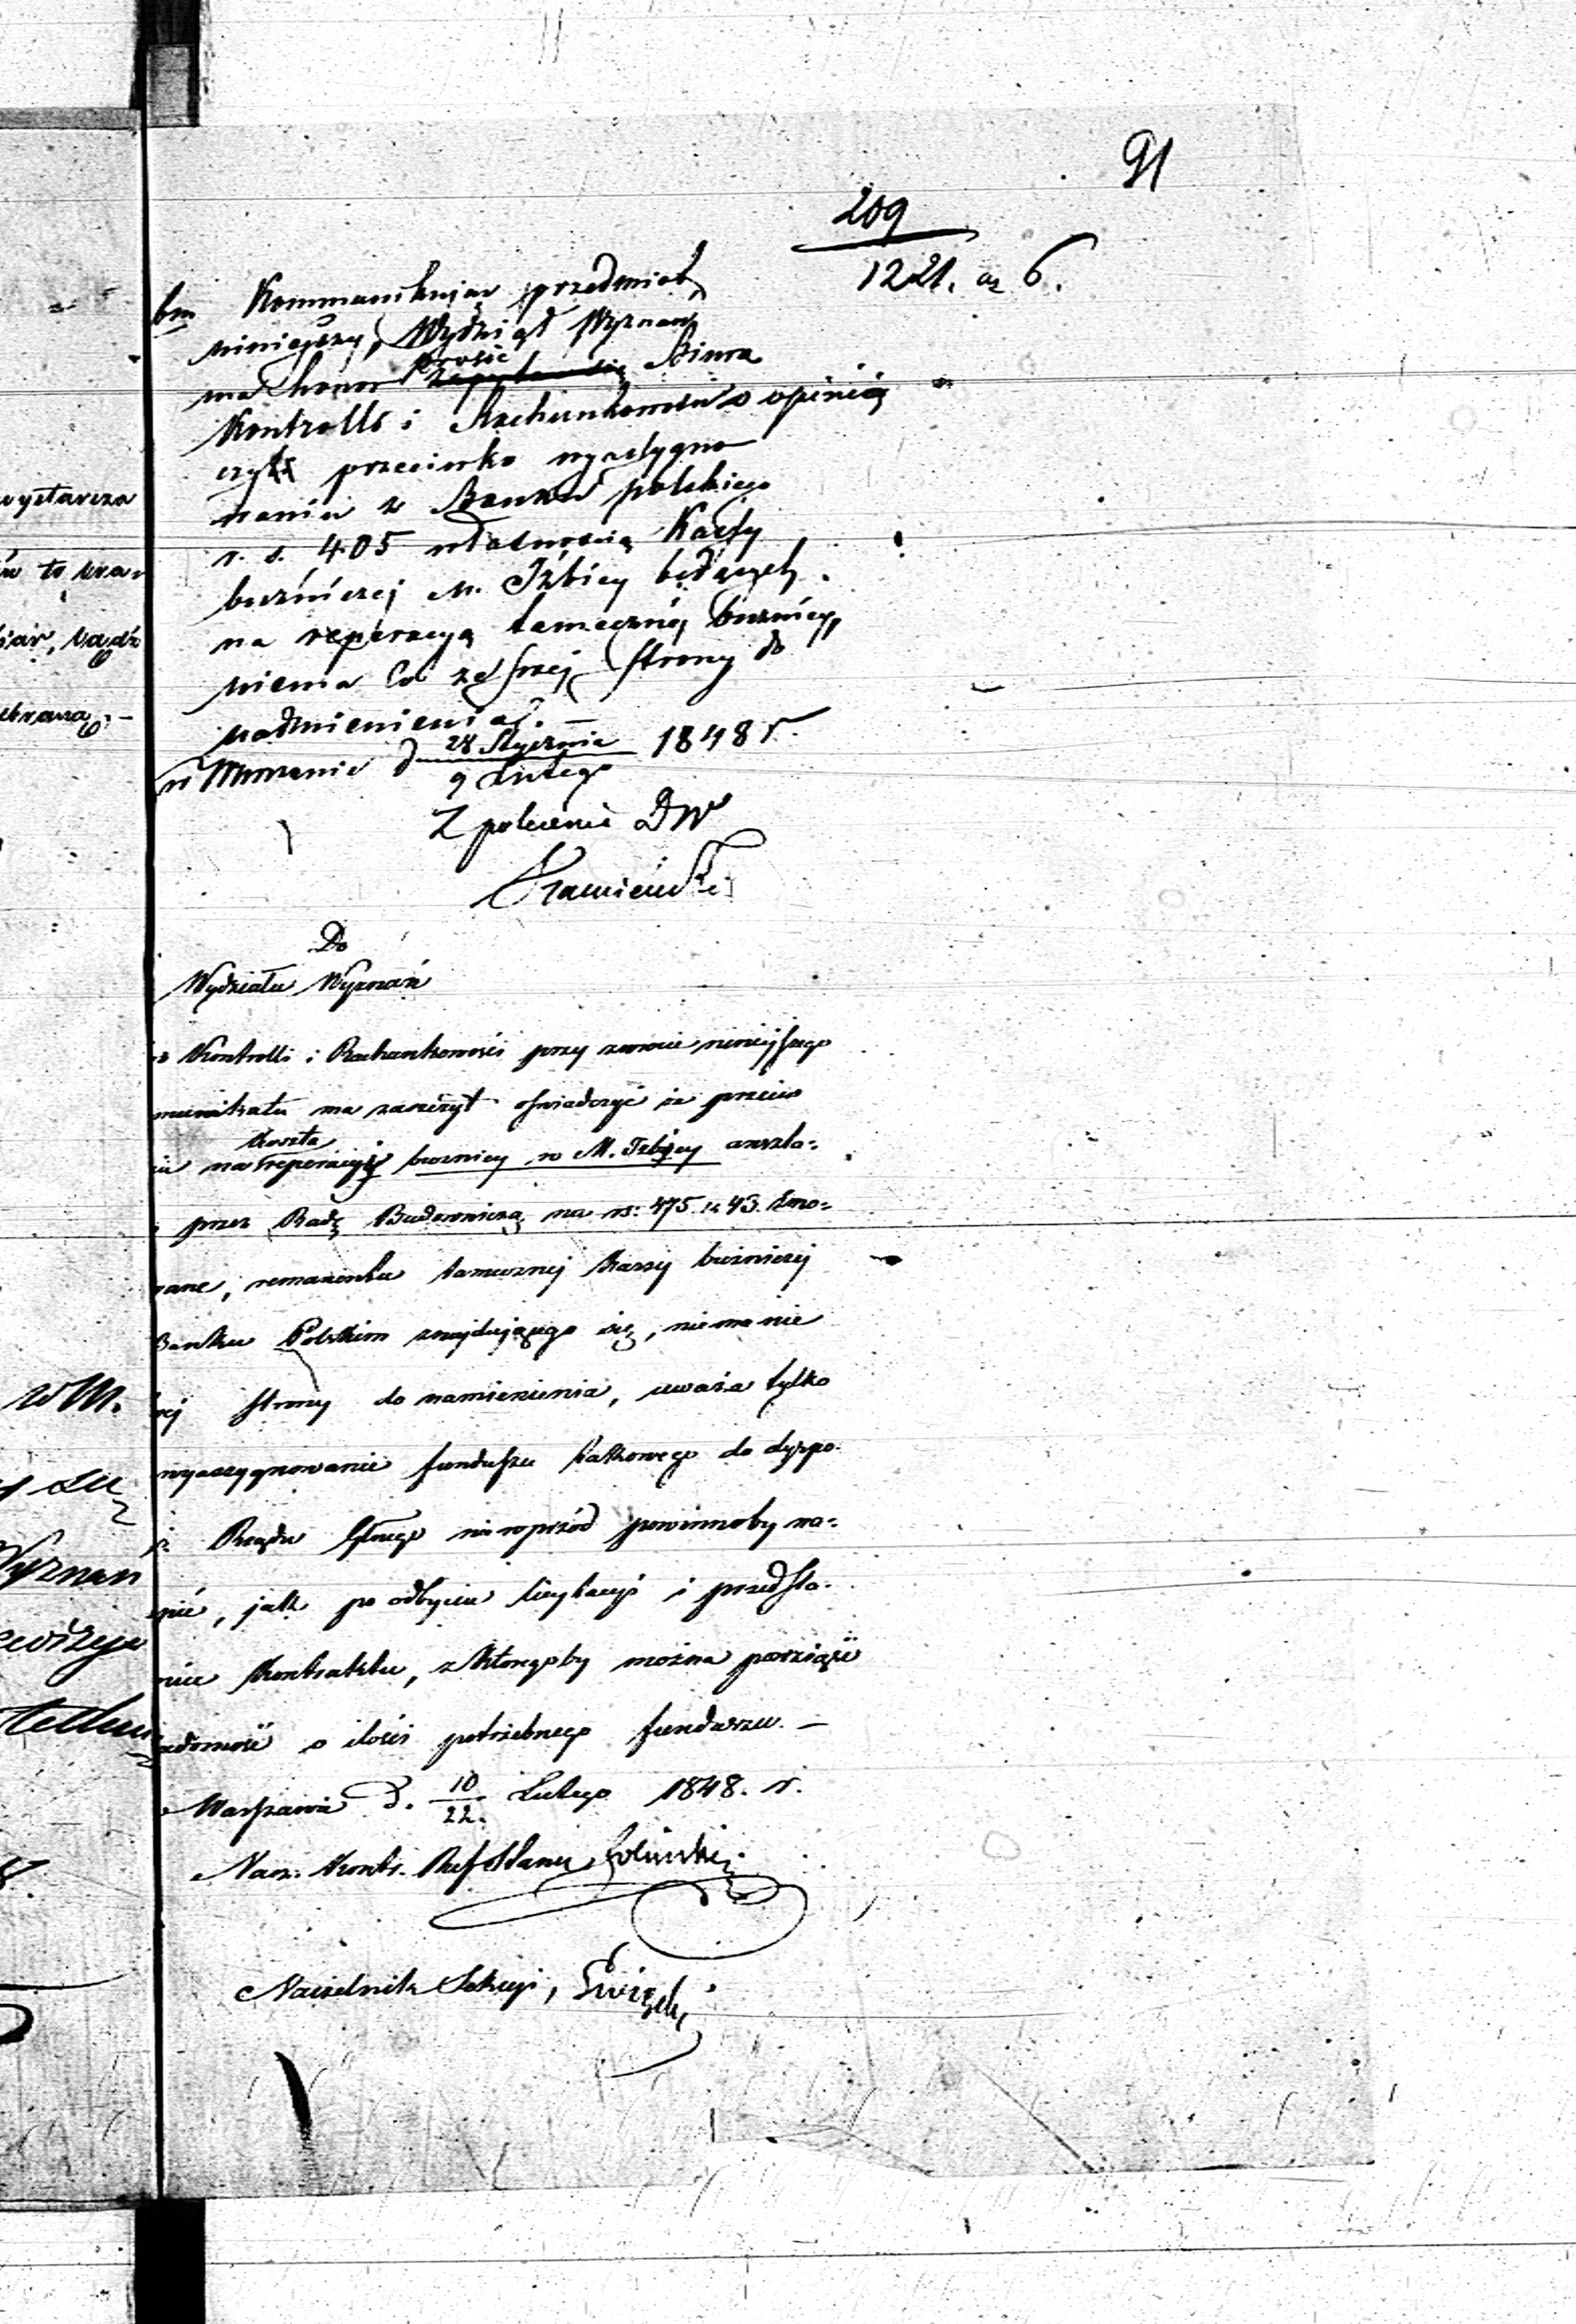 91
209
1221. az 6.
bm Kommunikując przedmiot
niniejszy, Wydział Wyznań
ma honor prosić Biura
Kontrolli i Rachunkowości o opinią
czyli przeciwko wyassygno
waniu z Banku polskiego
r. s. 405 własnością Kassy
bożniczej m. Iżbicy będących
na reperacyą tameczney bożnicy,
niema co ze swej strony do
nadmienienia?. —
w Warszawie d 28 Stycznia / 9 Lutego 1848 r.
Z polecenia DW
Do
Wydziału Wyznań
Kontrolli i Rachunkowości przy zwrocie niniejszego
munikatu ma zaszczyt oświadczyć że przeciw
koszta
na reperacyi bożnicy w M. Izbicy anszla-
przez Radę Budowniczą na rs: 475 k 43. zmo-
wane, remanentu tamecznej kassy bożniczej
Banku Polskim znajdującego się, niema nic
ej strony do namienienia, uważa tylko
wyassygnowanie funduszu takowego do dyspo-
Rządu Głnego niewprzód powinnoby na-
pić, jak po odbyciu licytacyi i przedsta-
nie Kontraktu, z któregoby można powziąść
adomość o ilości potrzebnego funduszu. —
Warszawa d. 10/22. Lutego 1848. r.
Nacz. Kontr. Ref Stanu
Naczelnik Sekcyi,
wystarcza
to wra-
w M.
Wyznań